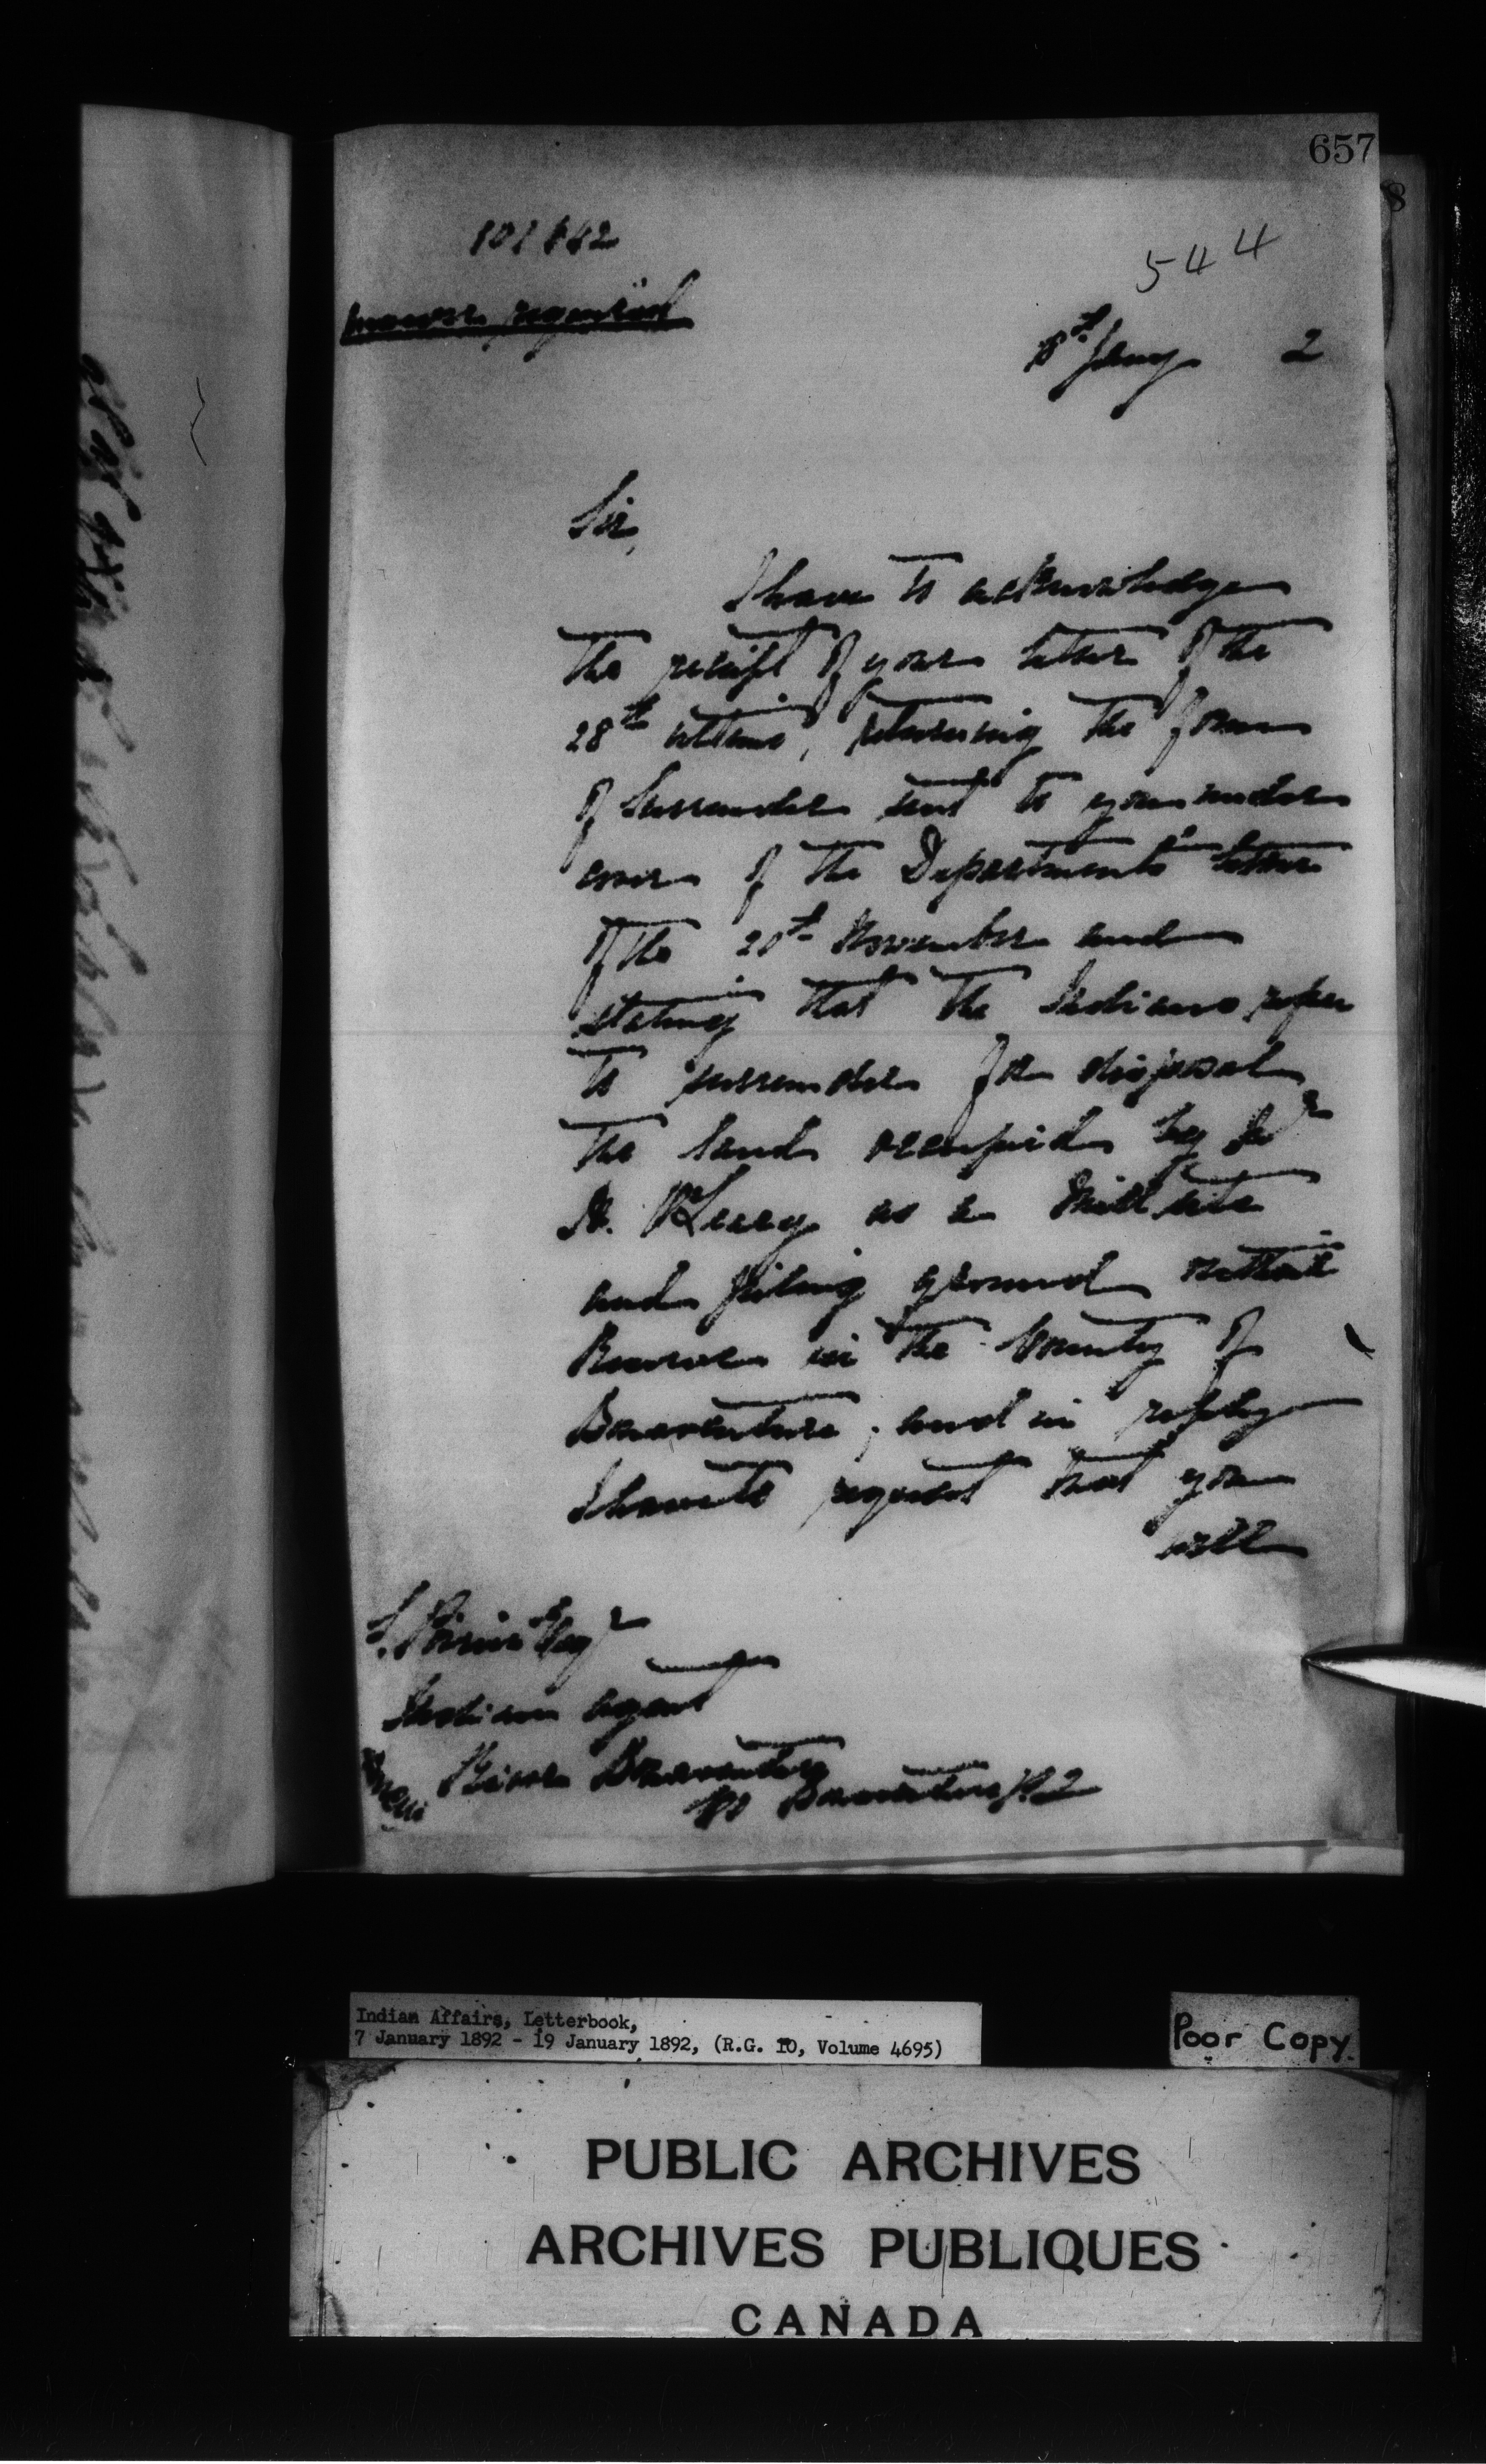 657
544
answer required
8th Jany 2
Sir,
I have to acknowledge
the receipt of your letter of the
28th ultimo, returning the form
of Surrender sent to you under
cover of the Department's letter
of the 20th November and
stating that the Indians refuse
to surrender for disposal
the land occupied by
as a Mill site
and piling ground
Reserve in the County of
Bonaventure, and in reply
I have to request that you
will
Esqr
Indian Agent
River Bonaventure
Co Bonaventure P.Q
Indian Affairs, Letterbook,
7 January 1892 - 19 January 1892, (R.G. 10, Volume 4695)
Poor Copy.
PUBLIC ARCHIVES
ARCHIVES PUBLIQUES
CANADA